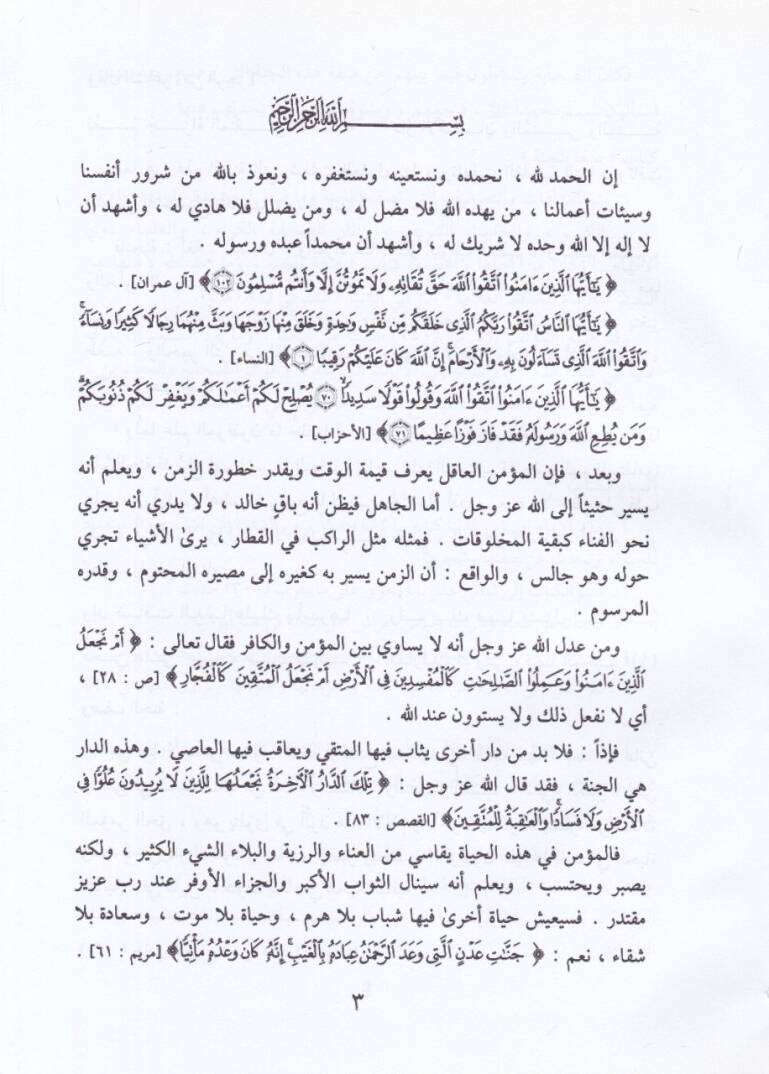 بسم الله الرحمن الرحيم
إن الحمد لله ، نحمده ونستعينه ونستغفره ، ونعوذ بالله من شرور أنفسنا
وسيئات أعمالنا ، من يهده الله فلا مضل له ، ومن يضلل فلا هادي له ، وأشهد أن
لا إله إلا الله وحده لا شريك له ، وأشهد أن محمداً عبده ورسوله .
﴿ يَٰٓأَيُّهَا ٱلَّذِينَ ءَامَنُوا۟ ٱتَّقُوا۟ ٱللَّهَ حَقَّ تُقَاتِهِۦ وَلَا تَمُوتُنَّ إِلَّا وَأَنتُم مُّسْلِمُونَ ١٠٢﴾ [آل عمران] .
﴿ يَٰٓأَيُّهَا ٱلنَّاسُ ٱتَّقُوا۟ رَبَّكُمُ ٱلَّذِى خَلَقَكُم مِّن نَّفْسٍ وَٰحِدَةٍ وَخَلَقَ مِنْهَا زَوْجَهَا وَبَثَّ مِنْهُمَا رِجَالًا كَثِيرًا وَنِسَآءً ۚ
وَٱتَّقُوا۟ ٱللَّهَ ٱلَّذِى تَسَآءَلُونَ بِهِۦ وَٱلْأَرْحَامَ ۚ إِنَّ ٱللَّهَ كَانَ عَلَيْكُمْ رَقِيبًا ١﴾ [النساء] .
﴿ يَٰٓأَيُّهَا ٱلَّذِينَ ءَامَنُوا۟ ٱتَّقُوا۟ ٱللَّهَ وَقُولُوا۟ قَوْلًا سَدِيدًا ٧٠ يُصْلِحْ لَكُمْ أَعْمَٰلَكُمْ وَيَغْفِرْ لَكُمْ ذُنُوبَكُمْ ۗ
وَمَن يُطِعِ ٱللَّهَ وَرَسُولَهُۥ فَقَدْ فَازَ فَوْزًا عَظِيمًا ٧١﴾ [الأحزاب] .
وبعد ، فإن المؤمن العاقل يعرف قيمة الوقت ويقدر خطورة الزمن ، ويعلم أنه
يسير حثيثاً إلى الله عز وجل . أما الجاهل فيظن أنه باقٍ خالد ، ولا يدري أنه يجري
نحو الفناء كبقية المخلوقات . فمثله مثل الراكب في القطار ، يرىٰ الأشياء تجري
حوله وهو جالس ، والواقع : أن الزمن يسير به كغيره إلى مصيره المحتوم ، وقدره
المرسوم .
ومن عدل الله عز وجل أنه لا يساوي بين المؤمن والكافر فقال تعالى : ﴿ أَمْ نَجْعَلُ
ٱلَّذِينَ ءَامَنُوا۟ وَعَمِلُوا۟ ٱلصَّٰلِحَٰتِ كَٱلْمُفْسِدِينَ فِى ٱلْأَرْضِ أَمْ نَجْعَلُ ٱلْمُتَّقِينَ كَٱلْفُجَّارِ ﴾ [ص : ٢٨] ،
أي لا نفعل ذلك ولا يستوون عند الله .
فإذاً : فلا بد من دار أخرى يثاب فيها المتقي ويعاقب فيها العاصي . وهذه الدار
هي الجنة ، فقد قال الله عز وجل : ﴿ تِلْكَ ٱلدَّارُ ٱلْأَخِرَةُ نَجْعَلُهَا لِلَّذِينَ لَا يُرِيدُونَ عُلُوًّا فِى
ٱلْأَرْضِ وَلَا فَسَادًا ۚ وَٱلْعَٰقِبَةُ لِلْمُتَّقِينَ﴾ [القصص : ٨٣] .
فالمؤمن في هذه الحياة يقاسي من العناء والرزية والبلاء الشيء الكثير ، ولكنه
يصبر ويحتسب ، ويعلم أنه سينال الثواب الأكبر والجزاء الأوفر عند رب عزيز
مقتدر . فسيعيش حياة أخرىٰ فيها شباب بلا هرم ، وحياة بلا موت ، وسعادة بلا
شقاء ، نعم : ﴿ جَنَّٰتِ عَدْنٍ ٱلَّتِى وَعَدَ ٱلرَّحْمَٰنُ عِبَادَهُۥ بِٱلْغَيْبِ ۚ إِنَّهُۥ كَانَ وَعْدُهُۥ مَأْتِيًّا﴾ [مريم : ٦١] .
٣